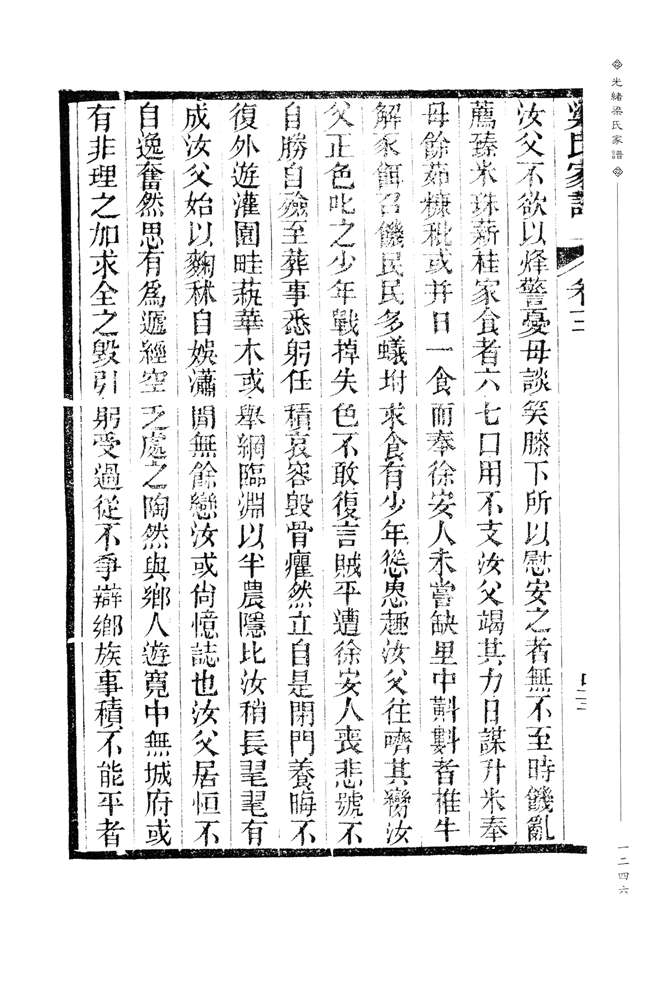 光緒梁氏家譜
一二四六
梁氏家譜 卷三 四三
汝父不欲以烽警憂母談笑膝下所以慰安之者無不至時饑亂
薦臻米珠薪桂家食者六七口用不支汝父竭其力日謀升米奉
母餘茹糠秕或并日一食而奉徐安人未嘗缺里中斢數者推牛
解家餌召饑民民多蟻坿求食有少年慫恿趣汝父往嚌其臠汝
父正色叱之少年戰掉失色不敢復言賊平遭徐安人喪悲號不
自勝自殮至葬事悉躬任積哀容毀骨癯然立自是閉門養晦不
復外遊灌園畦蓺華木或舉網臨淵以半農隱比汝稍長毣毣有
成汝父始以麴秫自娛瀟閒無餘戀汝或尙憶誌也汝父居恒不
自逸奮然思有爲遞經空乏處之陶然與鄉人遊寬中無城府或
有非理之加求全之毀引躬受過從不爭辯鄉族事積不能平者